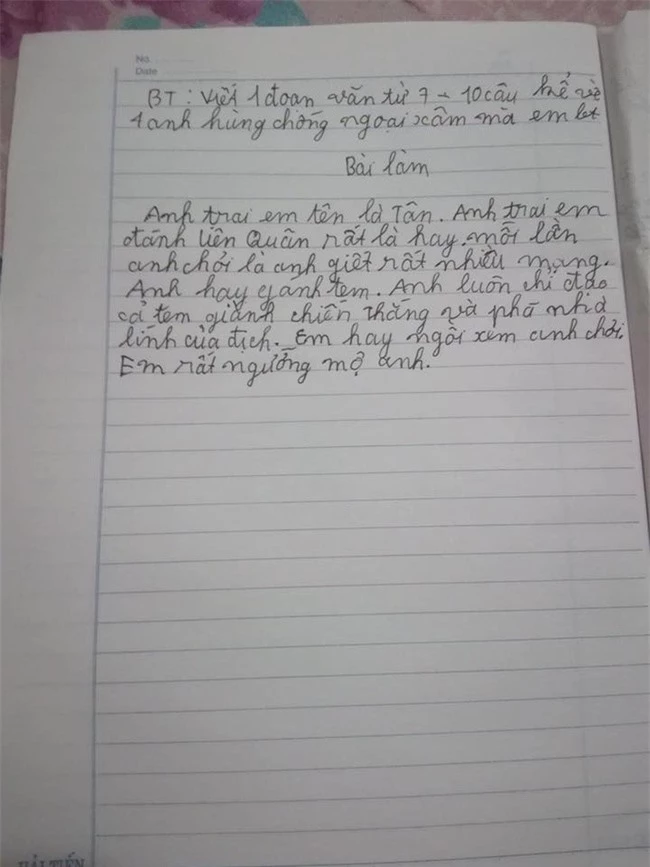 No.
Date
BT : Viết 1 đoạn văn từ 7 - 10 câu kể về
1 anh hùng chống ngoại xâm mà em bet
Bài làm
Anh trai em tên là Tân. Anh trai em
đánh liên Quân rất là hay. mỗi lần
anh chơi là anh giết rất nhiều mạng.
Anh hay gánh tem. Anh luôn chỉ đạo
cả tem giành chiến thắng và phá nhà
lính của địch. Em hay ngồi xem anh chơi.
Em rất ngưỡng mộ anh.
HẢI TIẾN